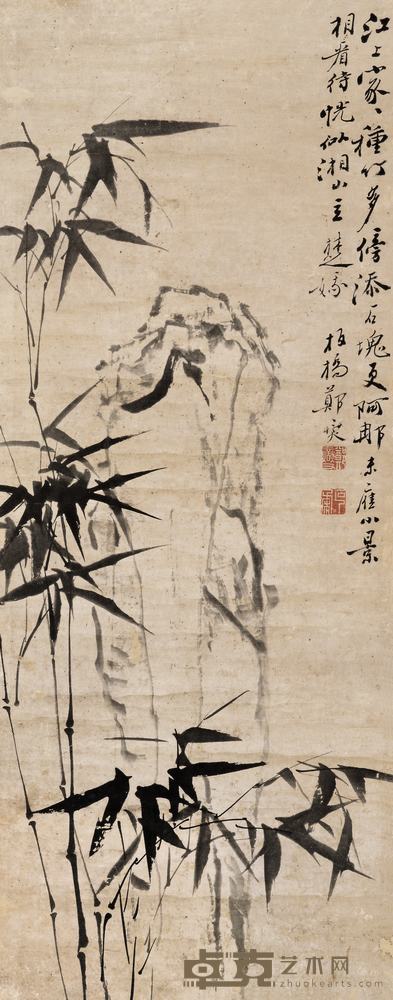 江上家家種竹多傍添石塊更阿那未應小景
相看待恍似湘山立楚娥
板橋鄭燮
卓克艺术网
zhuokearts.com